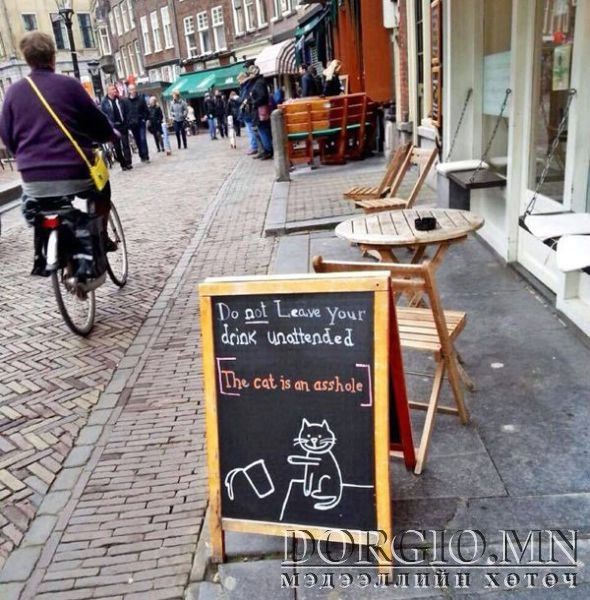 Do not Leave your
drink unattended
[The cat is an asshole]
DORGIO.MN
МЭДЭЭЛЛИЙН ХӨТӨЧ